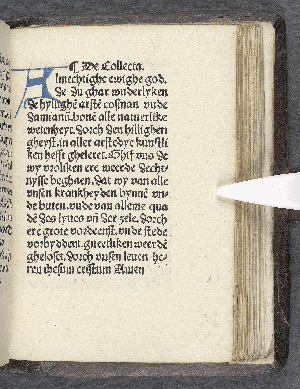 ¶ De Collecta.
Almechtighe ewighe god.
de du ghar wuderlyken
de hyllighē arstē cosman vnde
damianū. bouē alle naturlike
wetenheyt. dorch den hillighen
gheyst. in aller arstedye kunstli
ken hefft gheleret. Ghif vns de
wy vroliken ere werde decht-
nysse beghaen. dat wy van alle
vnsen krankheyden bynnē vn-
de buten. vnde van alleme qua
dē des lyues vn̄ der zele. dorch
ere grote vordenst. vnde stede
vorbyddent. gnetliken werdē
ghelost. Dorch vnsen leuen he-
ren ihesum cristum Amen